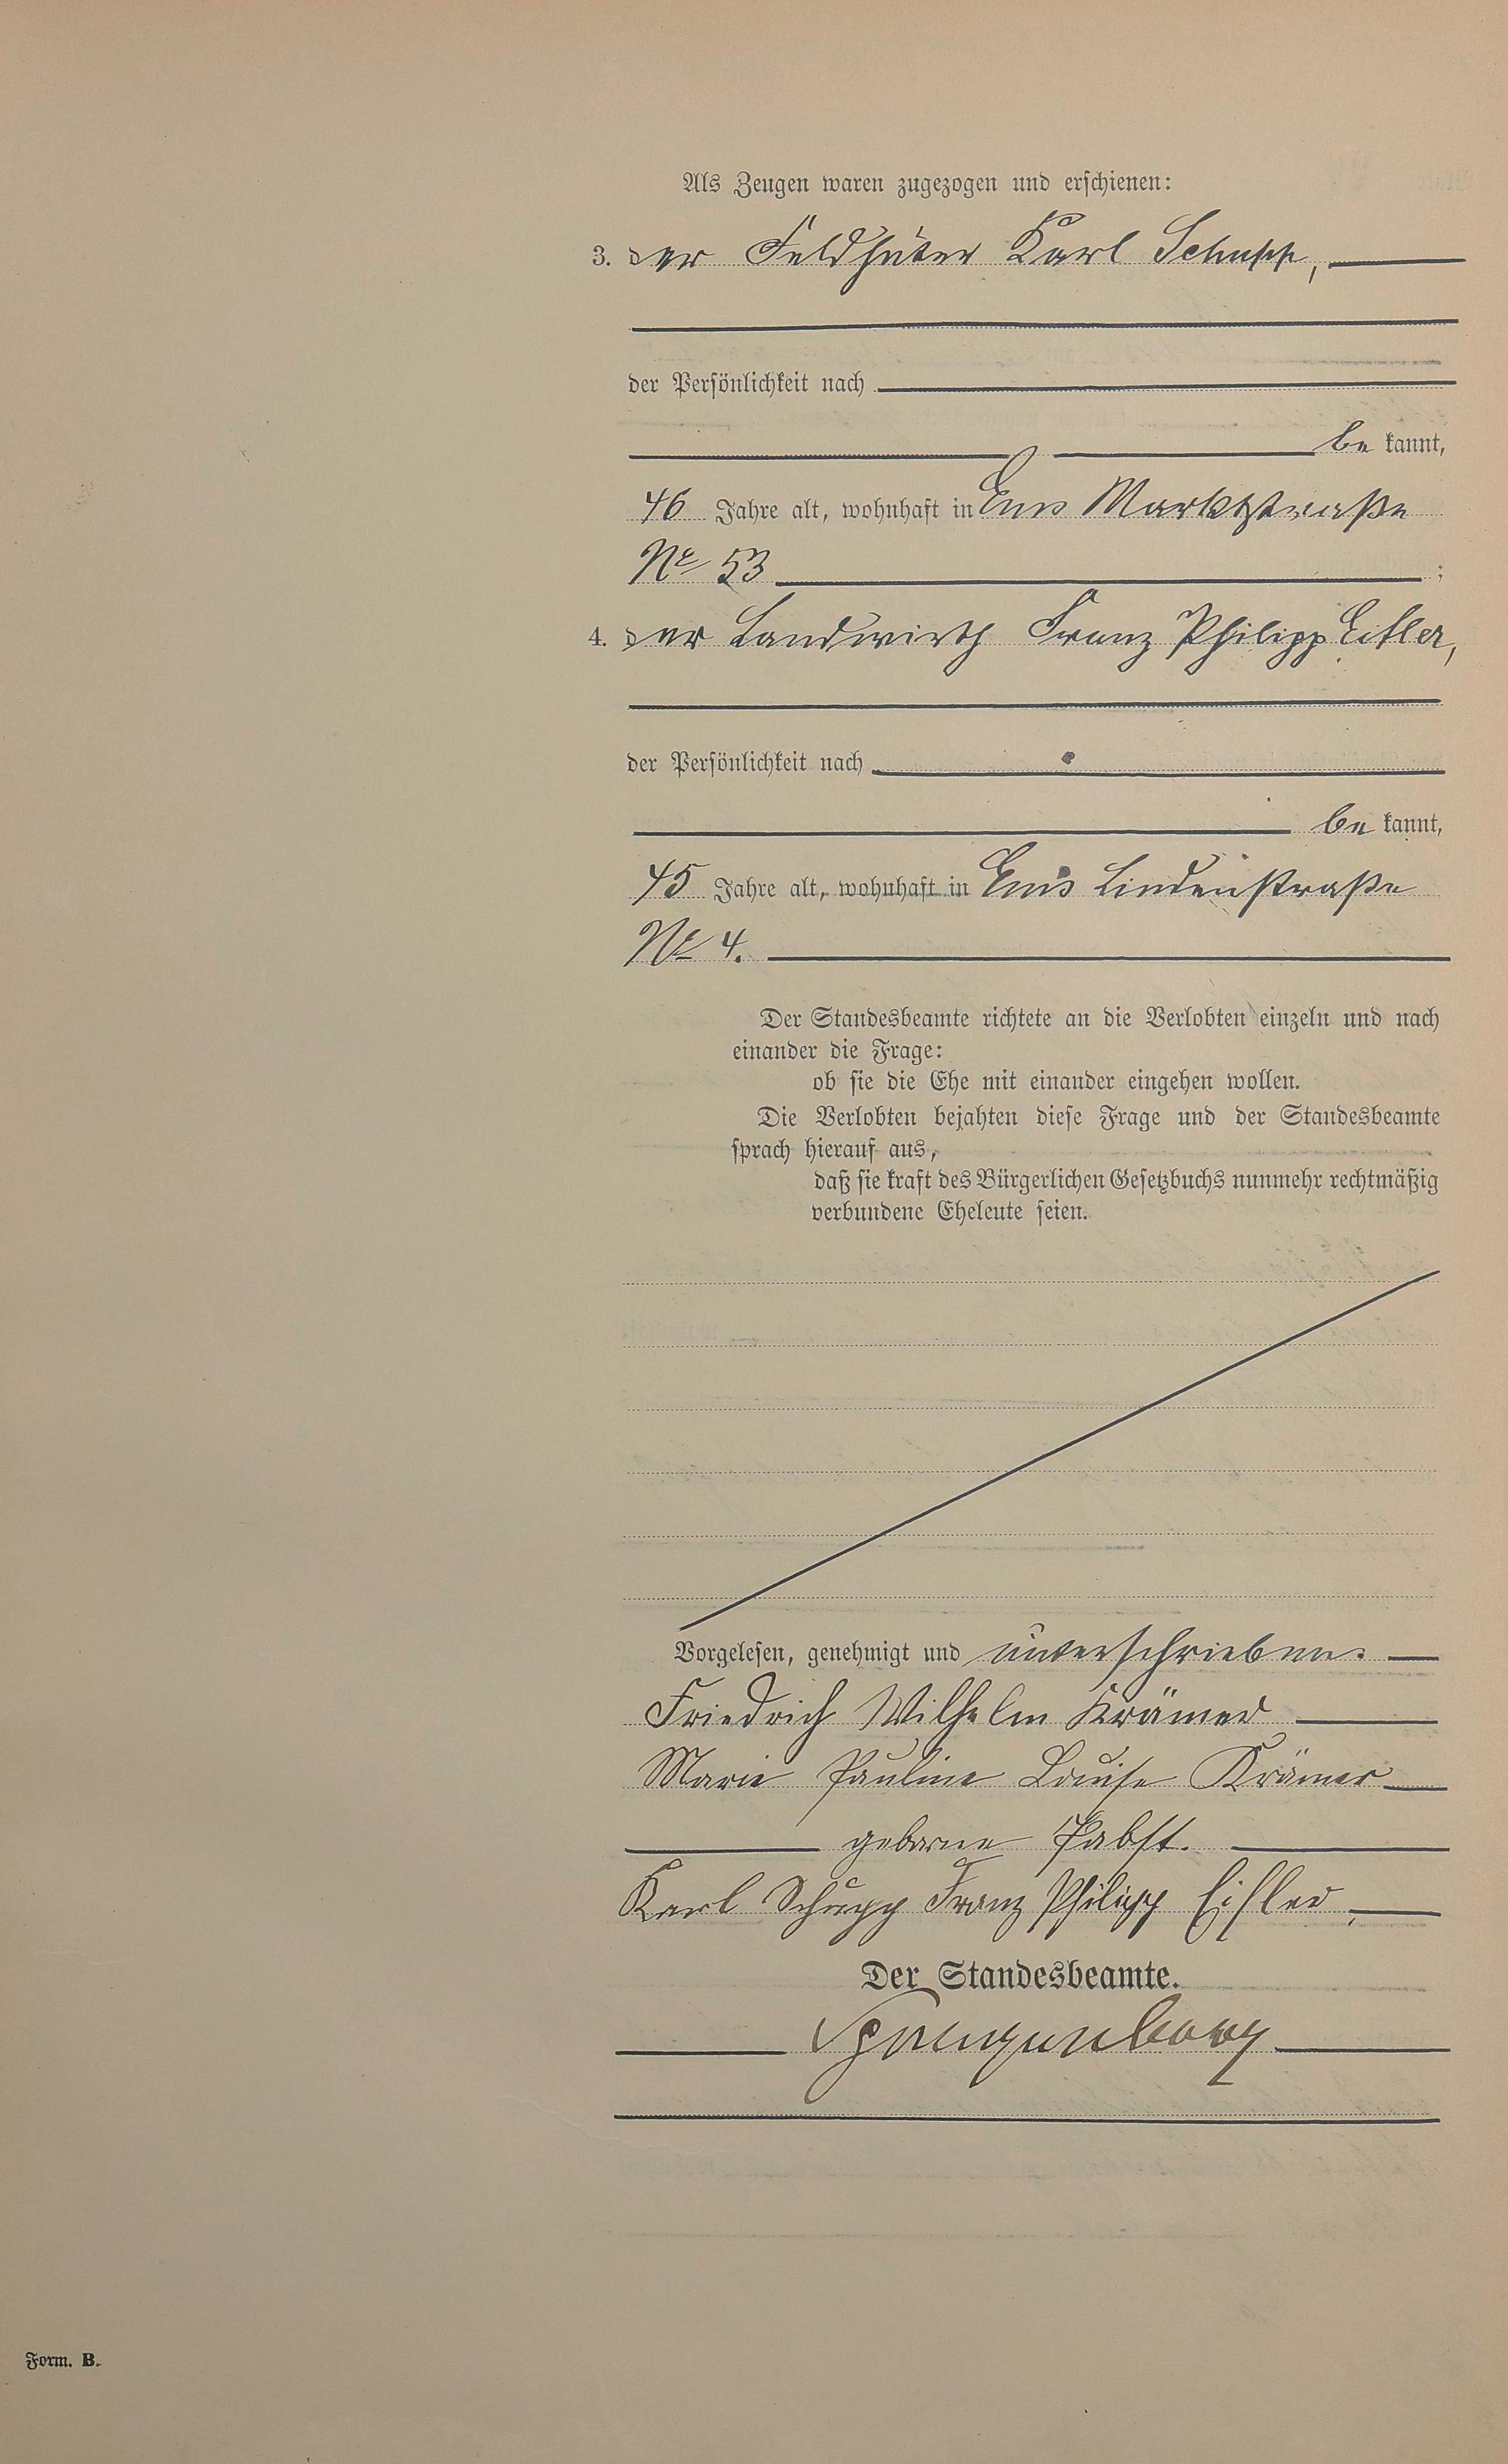 Als Zeugen waren zugezogen und erschienen:
3. der Feldhüter Karl Schupp,
der Persönlichkeit nach
be kannt,
46 Jahre alt, wohnhaft in Ems Marktstraße
No 53 ;
4. der Landwirth Franz Philipp Eisler,
der Persönlichkeit nach
be kannt,
45 Jahre alt, wohnhaft in Ems Lindenstraße
No 4.
Der Standesbeamte richtete an die Verlobten einzeln und nach
einander die Frage:
ob sie die Ehe mit einander eingehen wollen.
Die Verlobten bejahten diese Frage und der Standesbeamte
sprach hierauf aus,
daß sie kraft des Bürgerlichen Gesetzbuchs nunmehr rechtmäßig
verbundene Eheleute seien.
Vorgelesen, genehmigt und unterschrieben.
Friedrich Wilhelm Krämer
Marie Pauline Louise Krämer
geborne Pabst.
Karl Schupp Franz Philipp Eisler
Der Standesbeamte.
Spangenberg
Form. B.